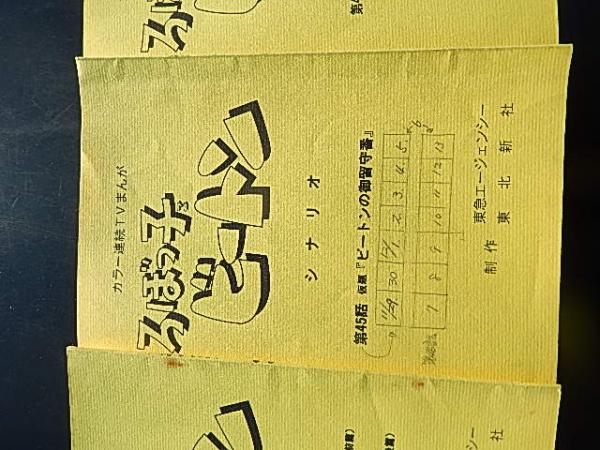 カラー連続TVまんが
ろぼっ子
ビートン
シナリオ
第45話 仮題『ビートンの御留守番』
11/29 30 12/1 2 3 4 5 6
7 8 9 10 11 12 13
東急エージェンシー
制作 東北新社